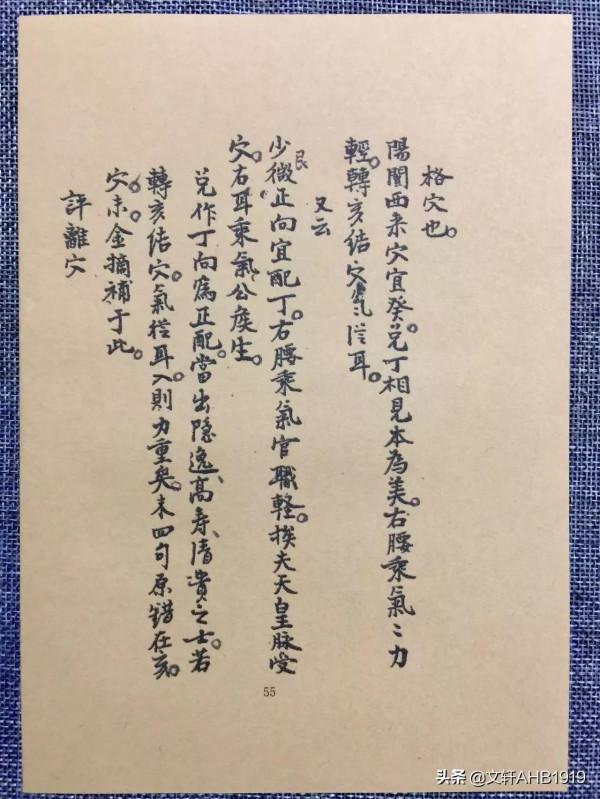 格穴也。
陽閣西来穴宜癸。兑丁相見本為美。右腰乘氣〻力
輕。轉亥結穴氣從耳。
又云
少微正向宜配丁。右腰乘氣官職軽。挨夫天皇脉受
艮
穴。右耳乘氣公侯生。
兑作丁向為正配當出隐逸、高寿、清貴之士。若
轉亥结穴。氣從耳入則力重矣。末四句原錯在亥。
穴。未。金摘補于此。
評離穴
55
头条 @文轩AHB1919